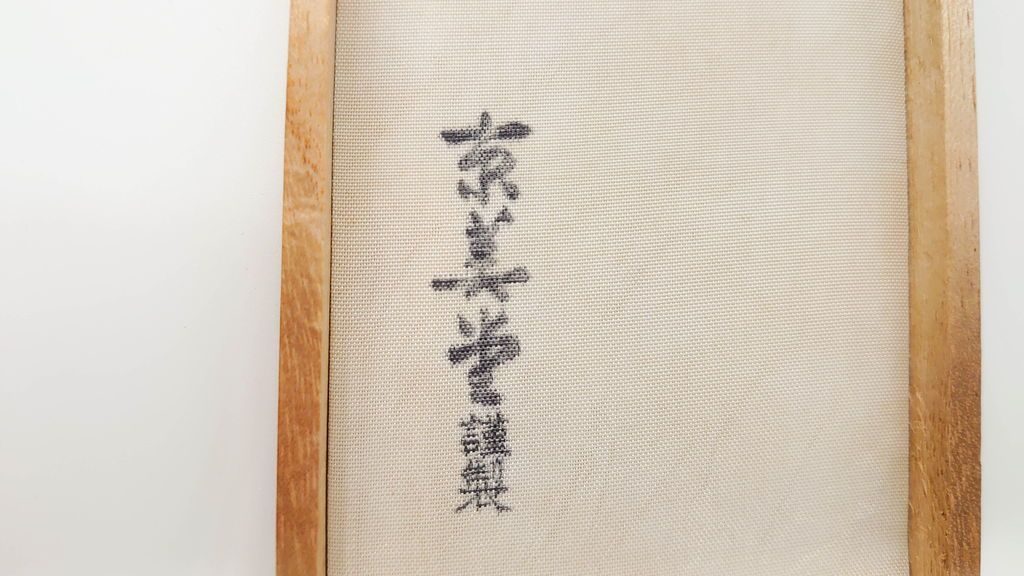 京美堂謹製